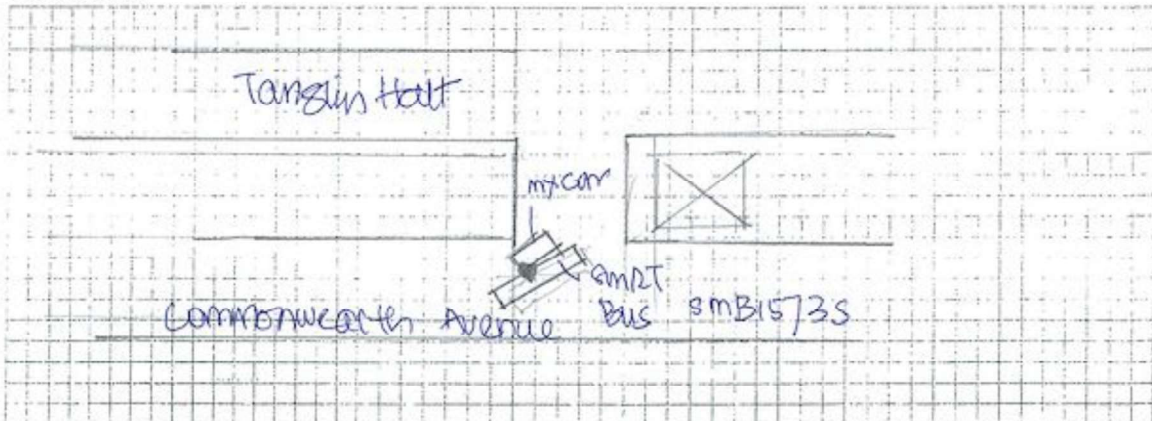 Tanglin Halt
my car
SMRT
Bus SMB1573S
Commonwealth Avenue